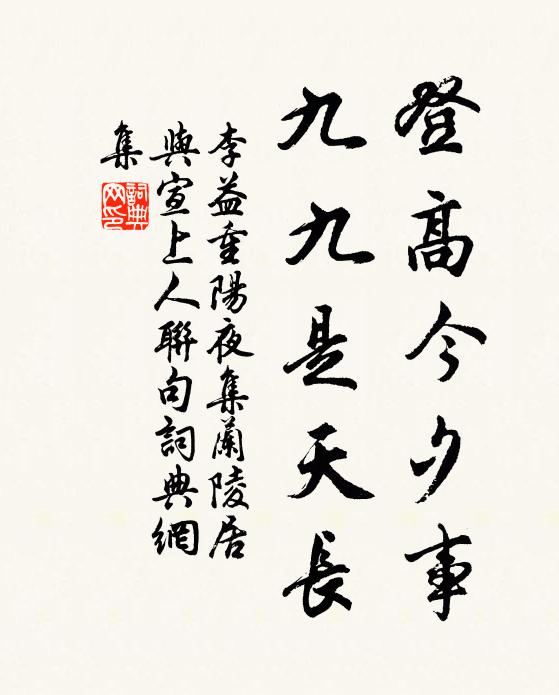 登高今夕事
九九是天長
李益重陽夜集蘭陵居
與宣上人聯句詞典網
集
詞典网印